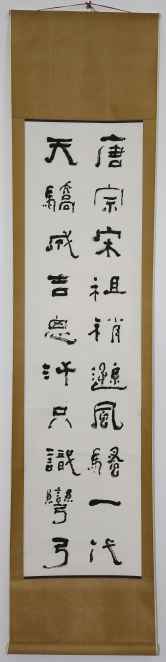 唐宗宋祖稍遜風騷一代
天驕成吉思汗只識彎弓